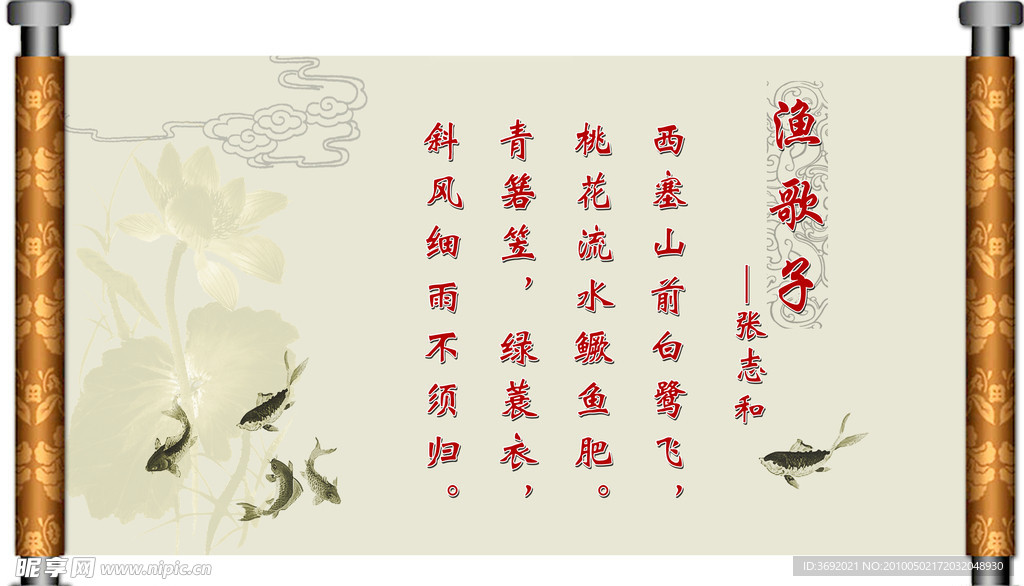 渔歌子
—张志和
西塞山前白鹭飞，
桃花流水鳜鱼肥。
青箬笠，绿蓑衣，
斜风细雨不须归。
昵享网 www.nipic.cn
ID:3692021 NO:20100502172032048930